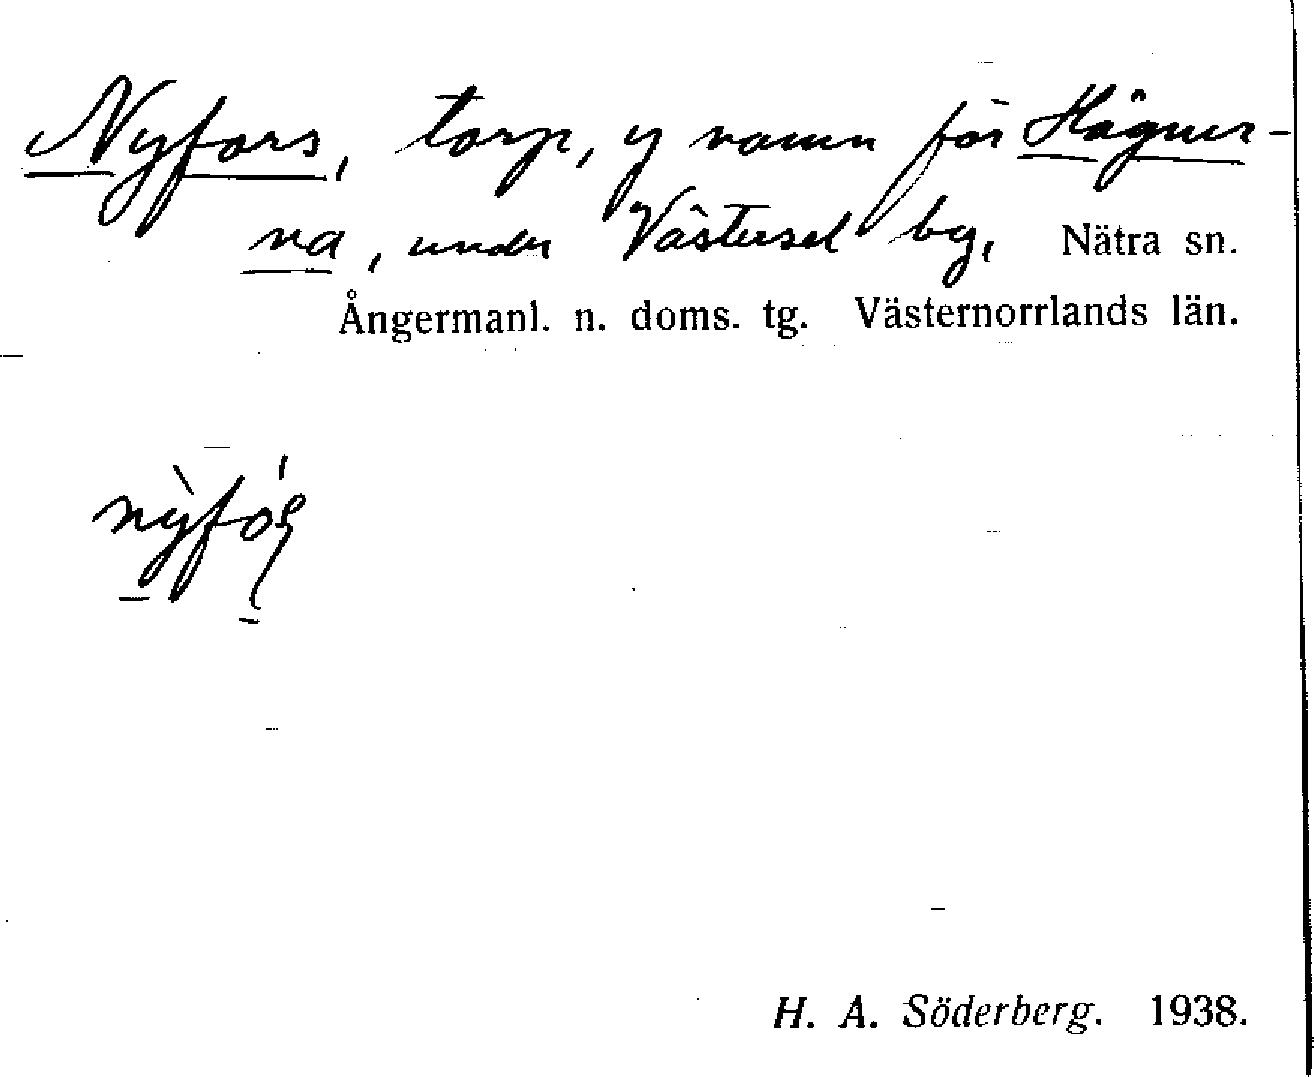 Nyfors, torp, y namn för Högner-
na, under Västersel by, Nätra sn.
Ångermanl. n. doms. tg. Västernorrlands län.
H. A. Söderberg. 1938.